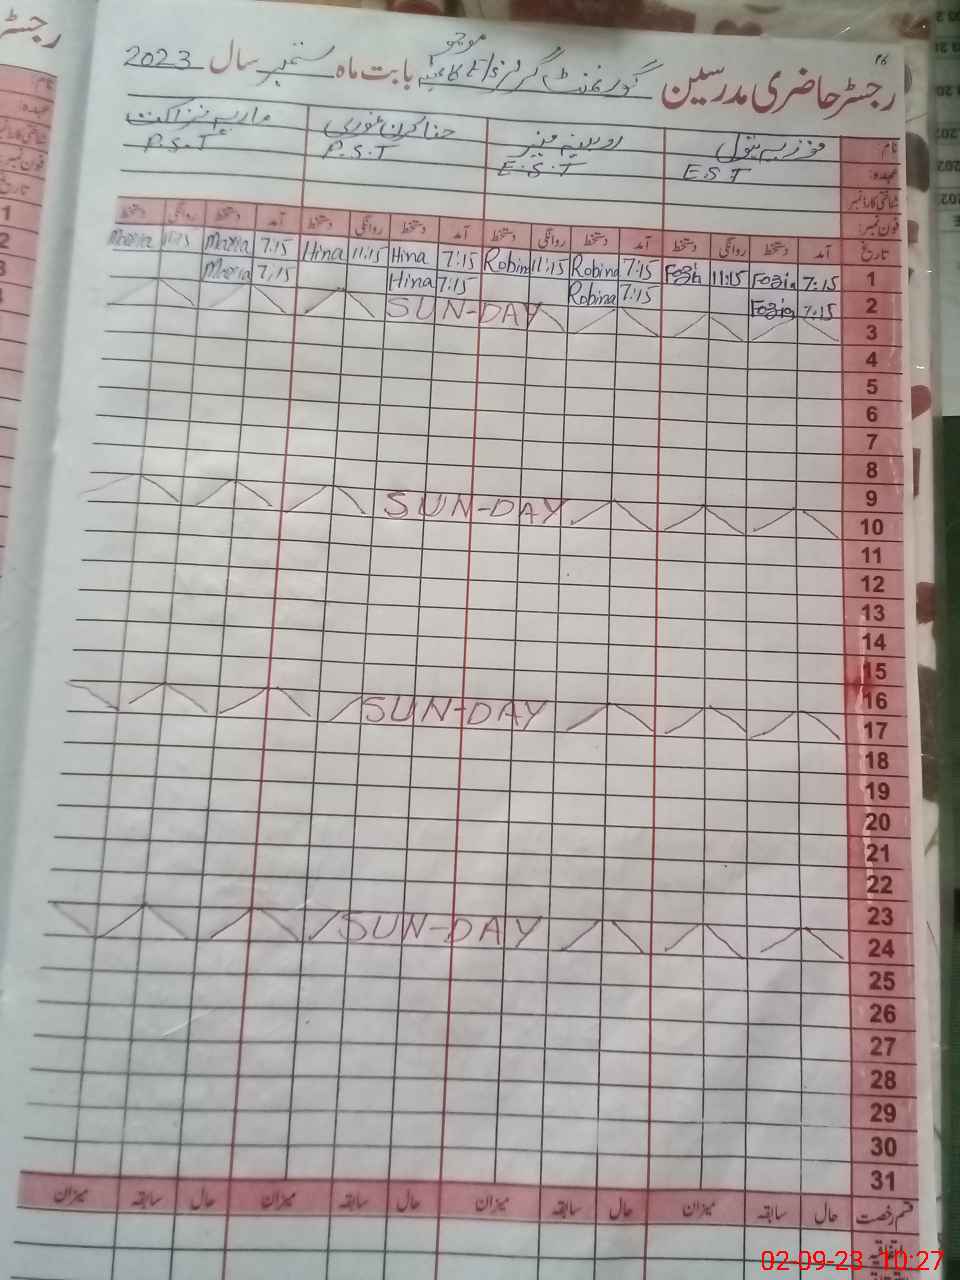 رجسٹر حاضری مدرسین گورنمنٹ گرلز بابت ماہ ستمبر سال 2023
نام فوزیہ بتول روبینہ منیر حنا کرن ماریہ نزاکت
عہدہ: E.S.T E.S.T P.S.T P.S.T
شناختی کارڈ نمبر
فون نمبر:
تاریخ آمد دستخط روانگی دستخط آمد دستخط روانگی دستخط آمد دستخط روانگی دستخط آمد دستخط روانگی دستخط
1 7:15 Fozia 11:15 Fozia 7:15 Robina 11:15 Robina 7:15 Hina 11:15 Hina 7:15 Maria 11:15 Maria
2 7:15 Fozia 7:15 Robina 7:15 Hina 7:15 Maria
3 SUN-DAY
4
5
6
7
8
9
10 SUN-DAY
11
12
13
14
15
16
17 SUN-DAY
18
19
20
21
22
23
24 SUN-DAY
25
26
27
28
29
30
31
قسم رخصت حال سابقہ میزان حال سابقہ میزان حال سابقہ میزان حال سابقہ میزان
اتفاقیہ
02-09-23 10:27